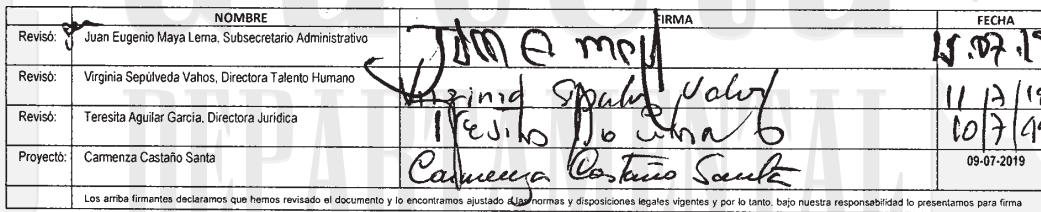 NOMBRE FIRMA FECHA
Revisó: Juan Eugenio Maya Lema, Subsecretario Administrativo
Revisó: Virginia Sepúlveda Vahos, Directora Talento Humano 11/7/19
Revisó: Teresita Aguilar García, Directora Jurídica 10/7/19
Proyectó: Carmenza Castaño Santa Carmenza Castaño Santa 09-07-2019
Los arriba firmantes declaramos que hemos revisado el documento y lo encontramos ajustado a las normas y disposiciones legales vigentes y por lo tanto, bajo nuestra responsabilidad lo presentamos para firma